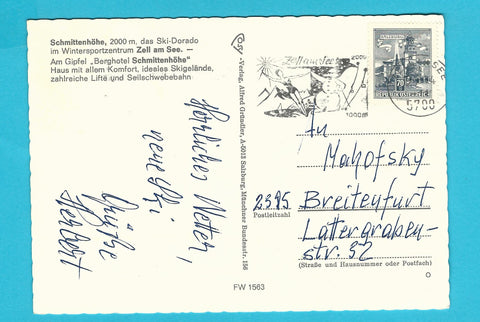 Schmittenhöhe, 2000 m, das Ski-Dorado
im Wintersportzentrum Zell am See. —
Am Gipfel „Berghotel Schmittenhöhe"
Haus mit allem Komfort, ideales Skigelände,
zahlreiche Lifte und Seilschwebebahn
Herrliches Wetter,
neue Ski
Grüße
Herbert
-Verlag, Alfred Gründler, A-5013 Salzburg, Münchner Bundesstr. 156
Zell am See
2000m
1000m
SEE
5700
70
REPUBLIK ÖSTERREICH
An
Mahofsky
2385 Breitenfurt
Postleitzahl
Lattergraben-
str. 32
(Straße und Hausnummer oder Postfach)
FW 1563